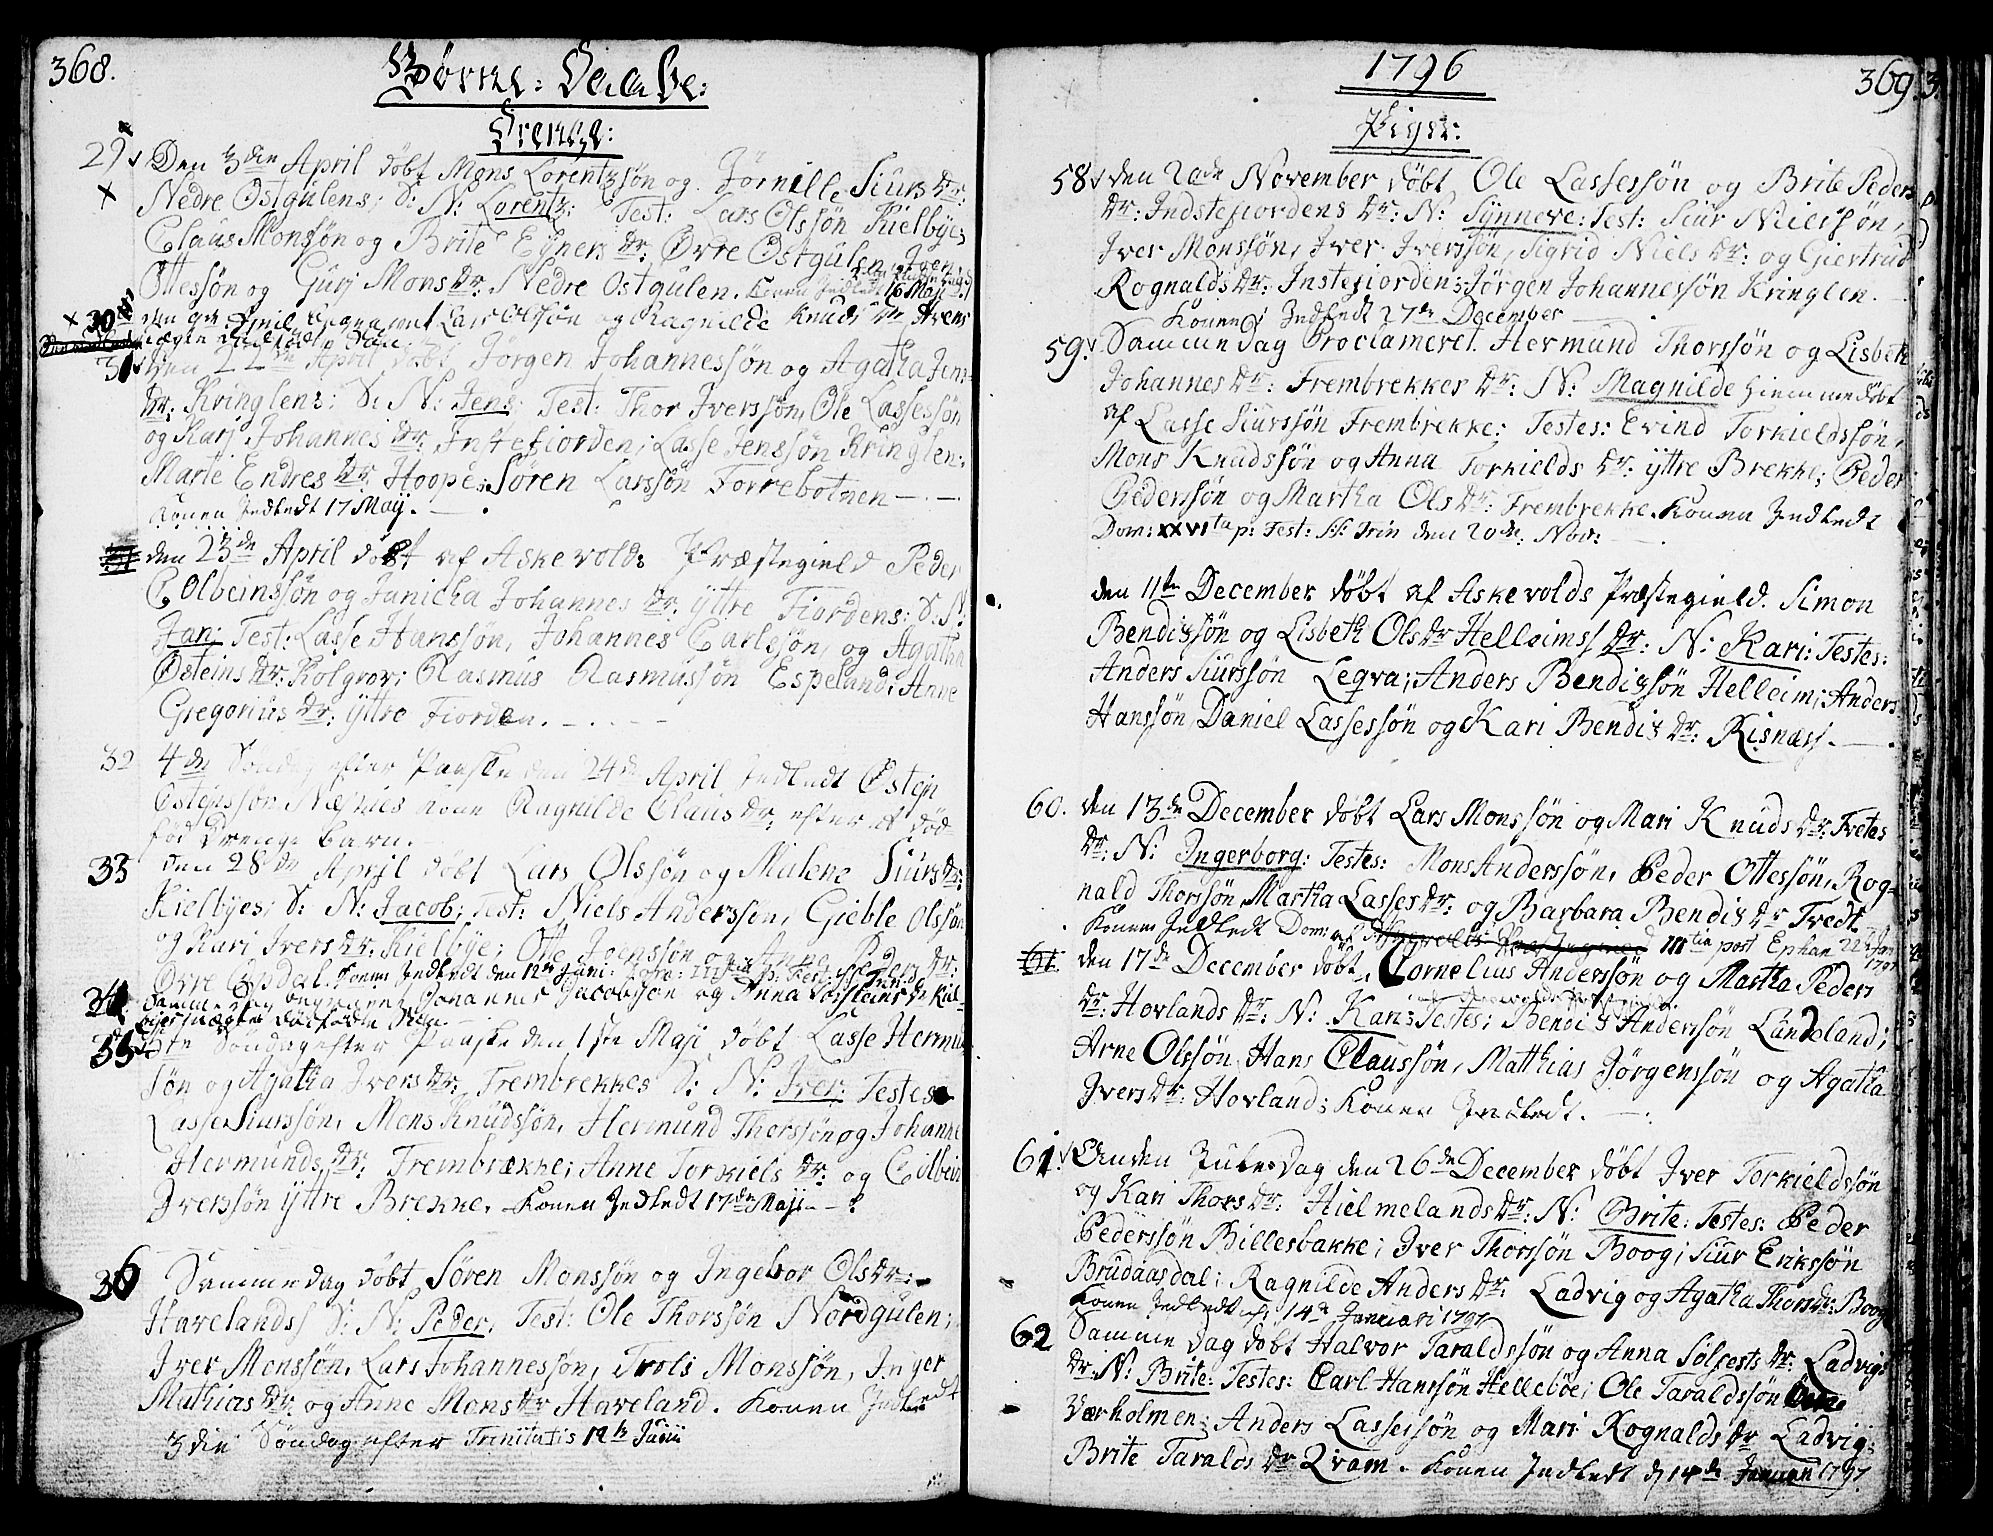 368.
Børne: Daabe:
Drenge:
29 Den 3die April døbt Mons Lorentzsøn og Jørnille Siurs Dr:
Nedre Østgulens; S: N: Lorentz: Test: Lars Olssøn Kielbye;
Claus Monssøn og Brite Eyners Dr: Øvre Ostgulen, Iver
Ottessøn og Guri Mons Dr: Nedre Ostgulen. Konen Indledt
30 den April Lars Olssøn og Ragnilde Knuds Dr
31 den 22de April døbt Jørgen Johannessøn og Agatha Jens
Dr: Kringlens; S: N: Jens: Test: Thor Iverssøn, Ole Lassessøn
og Kari Johannes Dr: Instefiorden; Lasse Jenssøn Kringlen;
Marte Endres Dr: Hoope; Søren Larssøn Torrebotnen
Konen Indledt 17 Maij.
den 23de April døbt af Askevolds Præstegield Peder
Colbeinssøn og Janicha Johannes Dr: Yttre Fiordens: S: N:
Jan; Test: Lasse Hanssøn, Johannes Carlssøn, og Agatha
Østeins Dr: Kolgrov; Rasmus Rasmussøn Espeland; Anne
Gregorius Dr: Yttre Fiorden.
32 4de Søndag efter Paaske den 24de April Indledt Østein
Osteinssøn Næsnes Kone Ragnilde Claus Dr: efter et død-
fød Drenge Barn.
33 den 28de April døbt Lars Olssøn og Malene Siurs Dr:
Kielbyes; S: N: Jacob; Test: Niels Anderssøn, Gieble Olssøn
og Kari Ivers Dr: Kielbye; Otte Joenssøn og Anne Peders Dr:
Øvre Opdal. Konen Indledt den 12te Junii
34 Samme dag begravet Johannes Jacobsøn og Anna Torsteins Dr Kiel-
byes dødfødte Søn.
35 5te Søndag efter Paaske den 1ste Maji døbt Lasse Hermund
søn og Agatha Ivers Dr: Frembrekkes S: N: Iver: Testes
Lasse Siurssøn, Mons Knudssøn, Hermund Thorssøn og Johanne
Hermunds Dr: Frembrekke; Anne Torkiels Dr: og Colbein
Iverssøn Yttre Brekke. Konen Indledt 17de Maji
36 Samme dag døbt Søren Monssøn og Ingebor Ols Dr:
Havelands S: N: Peder; Test: Ole Thorssøn Nordgulen;
Iver Monssøn, Lars Johannessøn, Troli Monssøn, Inger
Mathias Dr: og Anne Mons Dr Haveland. Konen Indledt
3die Søndag efter Trinitatis 12te Junii
1796
369.
Piger:
58 den 20de November døbt Ole Lassessøn og Brite Peders
Dr: Indstefiordens Dr: N: Synneve: Test: Siur Nielssøn,
Iver Monssøn, Iver Iverssøn, Sigrid Niels Dr: og Giertrud
Rognalds Dr: Instefiorden; Jørgen Johannessøn Kringlen.
Konen Indledt 27de December
59 Samme dag Proclameret Hermund Thorssøn og Lisbeth
Johannes Dr: Frembrekkes Dr: N: Magnilde hiemmedøbt
af Lasse Siurssøn Frembrekke; Testes: Evind Torkieldssøn,
Mons Knudssøn og Anna Torkields Dr: Yttre Brekke; Peder
Pederssøn og Martha Ols Dr: Frembrekke. Konen Indledt
Dom: XXVIta p: Fest: S: Trin den 20de Nov:
den 11te December døbt af Askevolds Præstegield. Simon
Bendixsøn og Lisbeth Ols Dr Helleims Dr: N: Kari: Testes:
Anders Siurssøn Leqva; Anders Bendixsøn Helleim; Anders
Hanssøn, Daniel Lassessøn og Kari Bendix Dr: Risnæs.
60. den 13de December døbt Lars Monssøn og Mari Knuds Dr: Tvetes
Dr: N: Ingerborg: Testes: Mons Anderssøn, Peder Ottessøn, Rog-
nald Thorssøn, Martha Lasses Dr: og Barbara Bendix Dr Tvedt
Konen Indledt Dom: IIItia post Ephan 22de Jan 1797
61 den 17de December døbt Cornelius Anderssøn og Martha Peders
Dr: Hovlands Dr: N: Kari; Testes; Bendix Anderssøn Lundeland;
Arne Olssøn, Hans Claussøn, Matthias Jørgenssøn og Agatha
Ivers Dr: Hovland; Konen Indledt.
61 Anden Juledag den 26de December døbt Iver Torkieldssøn
og Kari Thors Dr: Hielmelands Dr: N: Brite: Testes: Peder
Pederssøn Billesbakke; Iver Thorssøn Boog; Siur Erikssøn
Brudaasdal; Ragnilde Anders Dr: Ladvig og Agatha Thors Dr: Boog
Konen Indledt 14de Januari 1797
62 Samme Dag døbt Halvor Taraldssøn og Anna Solfests Dr: Ladvigs
Dr: N: Brite: Testes: Carl Hanssøn Hellebøe; Ole Taraldssøn
Værholmen; Anders Lassessøn og Mari Rognalds Dr Ladvig;
Brite Taralds Dr Qvam. Konen Indledt d 14de Januari 1797